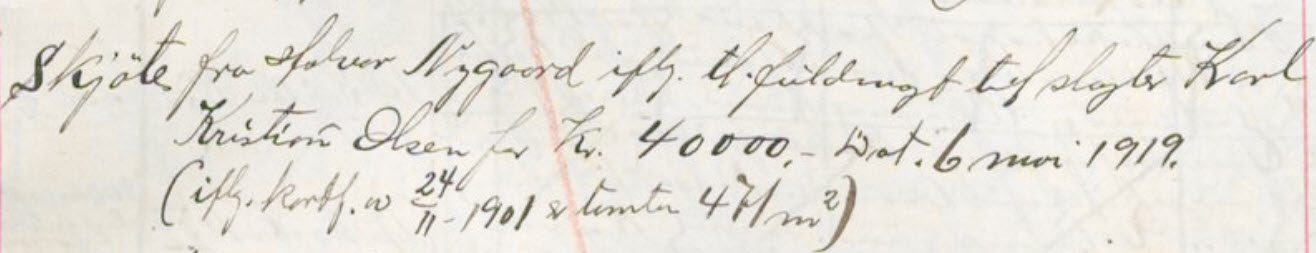 Skjöte fra Halvor Nygaard iflg. tl. fuldmagt til slagter Karl
Kristian Olsen for Kr. 40000,- Dat. 6 mai 1919.
(iflg. kartf. av 24/11-1901 er tomten 471 m²)